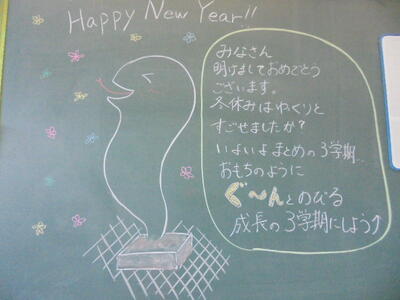 Happy New Year!!
みなさん
明けましておめでとう
ございます。
冬休みはゆっくりと
すごせましたか?
いよいよまとめの3学期…
おもちのように
ぐ〜んとのびる
成長の3学期にしよう↑